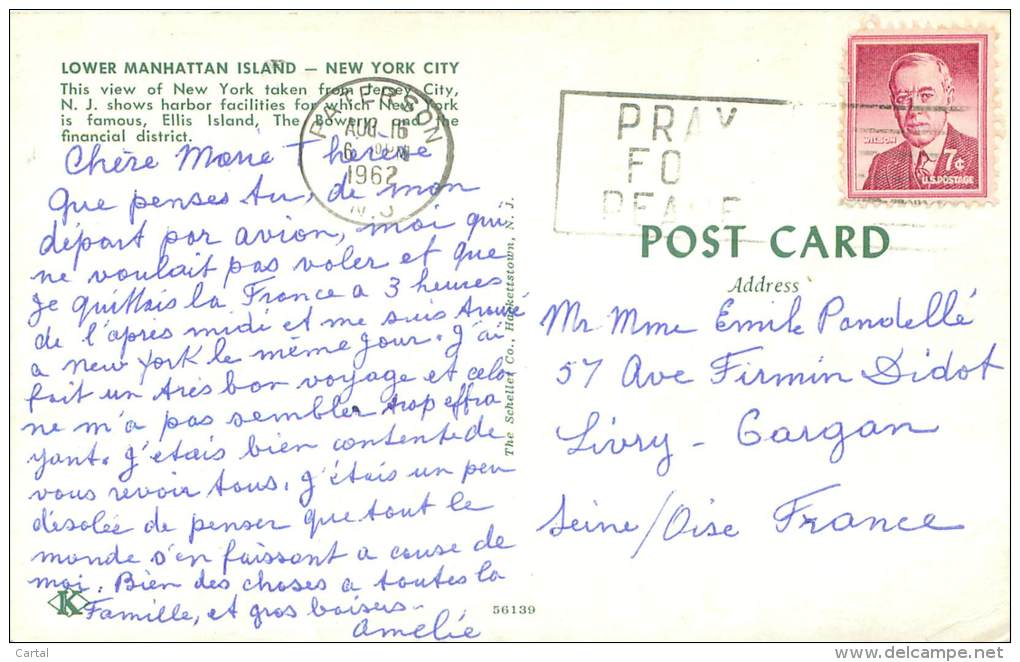 LOWER MANHATTAN ISLAND — NEW YORK CITY
This view of New York taken from Jersey City,
N. J. shows harbor facilities for which New York
is famous, Ellis Island, The Bowery and the
financial district.
PATERSON
AUG 16
6 PM
1962
N.J.
PRAY
FOR
PEACE
WILSON
7¢
U.S. POSTAGE
Chère Marie Therese
Que penses tu, de mon
départ par avion, moi qui
ne voulait pas voler et que
Je quittais la France a 3 heures
de l'apres midi et me suis trouvé
a New York le même jour. J'ai
fait un très bon voyage et cela
ne m'a pas sembler trop effra
yant. J'étais bien contente de
vous revoir tous, J'étais un peu
désolée de penser que tout le
monde s'en faissont a cause de
moi. Bien des choses a toutes la
Famille, et gros baisers -
Amelie
K
The Scheller Co., Hackettstown, N. J.
56139
POST CARD
Address
Mr Mme Emile Pandellé
57 Ave Firmin Didot
Livry - Gargan
Seine/Oise France
Cartal
www.delcampe.net